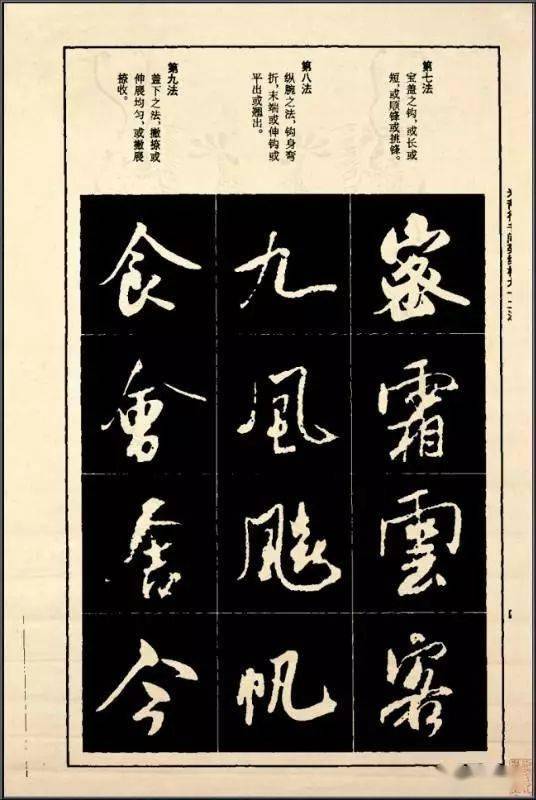 第七法
宝盖之钩，或长或
短，或顺锋或挑锋。
第八法
纵腕之法，钩身弯
折，末端或伸钩或
平出或翘出。
第九法
盖下之法，撇捺或
伸展均匀，或撇展
捺收。
密
霜
雲
客
九
風
帆
食
會
舍
今